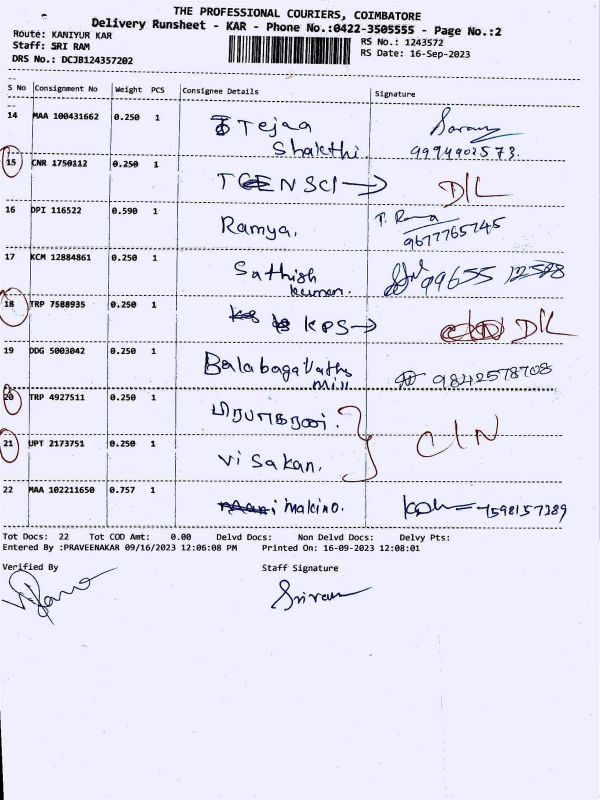 THE PROFESSIONAL COURIERS, COIMBATORE
Delivery Runsheet - KAR - Phone No.:0422-3505555 - Page No.:2
Route: KANIYUR KAR
RS No.: 1243572
Staff: SRI RAM
RS Date: 16-Sep-2023
DRS No.: DCJB124357202
S No Consignment No Weight PCS Consignee Details Signature
14 MAA 100431662 0.250 1 Tejaa
Shakthi. 9994902573.
15 CNR 1750112 0.250 1 D/L
16 DPI 116522 0.590 1 Ramya.
9677765745
17 KCM 12884861 0.250 1 Sathish
kumar.
18 TRP 7588935 0.250 1 KPS → D/L
19 DDG 5003042 0.250 1 Balabagavathy
Mill 9842578708
20 TRP 4927511 0.250 1 பிரபாகரன்.
C/N
21 UPT 2173751 0.250 1 Visakan.
22 MAA 102211650 0.757 1 imakino. 7598157389
Tot Docs: 22 Tot COD Amt: 0.00 Delvd Docs: Non Delvd Docs: Delvy Pts:
Entered By :PRAVEENAKAR 09/16/2023 12:06:08 PM Printed On: 16-09-2023 12:08:01
Verified By Staff Signature
Sriram